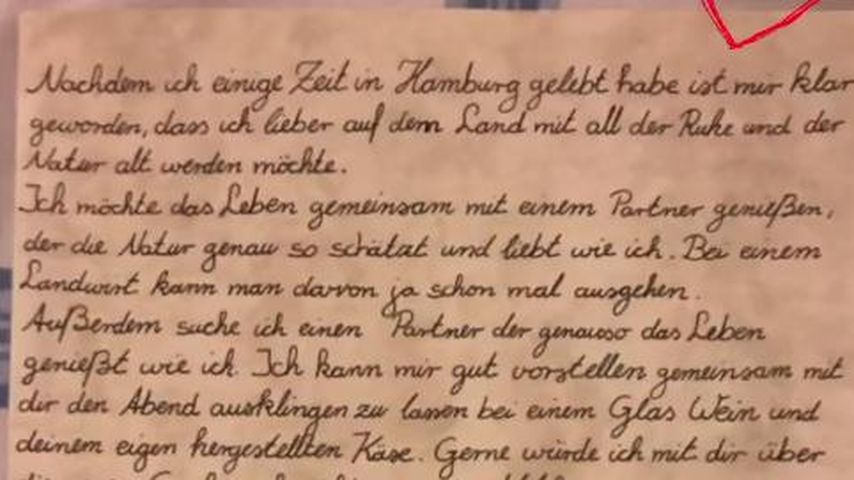 Nachdem ich einige Zeit in Hamburg gelebt habe ist mir klar
geworden, dass ich lieber auf dem Land mit all der Ruhe und der
Natur alt werden möchte.
Ich möchte das Leben gemeinsam mit einem Partner genießen,
der die Natur genau so schätzt und liebt wie ich. Bei einem
Landwirt kann man darvon ja schon mal ausgehen.
Außerdem suche ich einen Partner der genauso das Leben
genießt wie ich. Ich kann mir gut vorstellen gemeinsam mit
dir den Abend ausklingen zu lassen bei einem Glas Wein und
deinem eigen hergestellten Käse. Gerne würde ich mit dir über